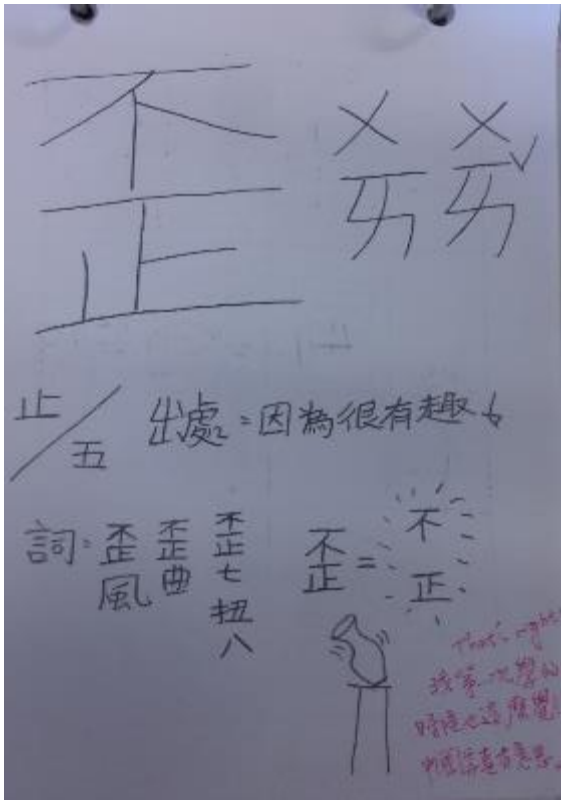 歪 ㄨㄞ ㄨㄞˇ
止/五 出處:因為很有趣。
詞:歪風 歪曲 歪七扭八
歪=不正
That's right!
我第一次學的
時候也這麼覺
中國字真有意思。